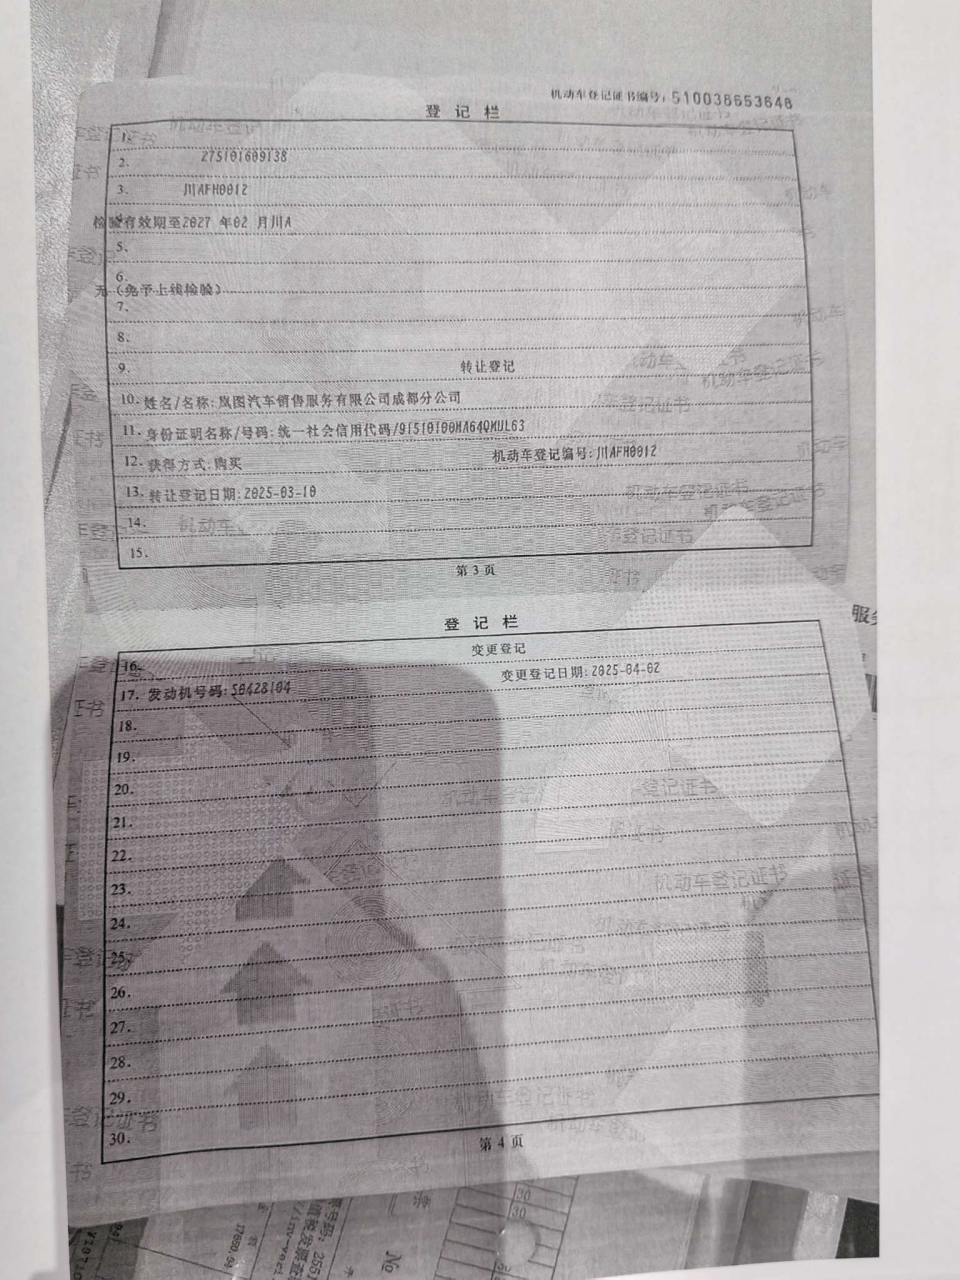 机动车登记证书编号:510038653648
登 记 栏
1.
2. 275101609138
3. 川AFH0012
4.
检验有效期至2027 年02 月川A
5.
6.
无(免予上线检验)
7.
8.
9. 转让登记
10. 姓名/名称:岚图汽车销售服务有限公司成都分公司
11. 身份证明名称/号码:统一社会信用代码/91510100MA64QMUL63
12. 获得方式:购买 机动车登记编号:川AFH0012
13. 转让登记日期:2025-03-10
14.
15.
第 3 页
登 记 栏
16. 变更登记
17. 发动机号码:S0428104 变更登记日期:2025-04-02
18.
19.
20.
21.
22.
23.
24.
25.
26.
27.
28.
29.
30.
第 4 页
30
30
No